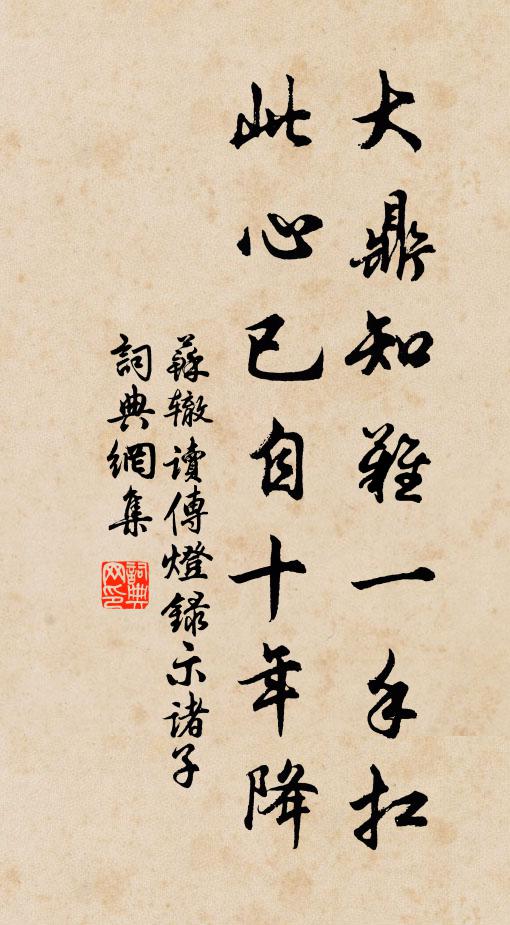 大鼎知難一手扛
此心已自十年降
蘇轍讀傳燈錄示諸子
詞典網集
詞典网印